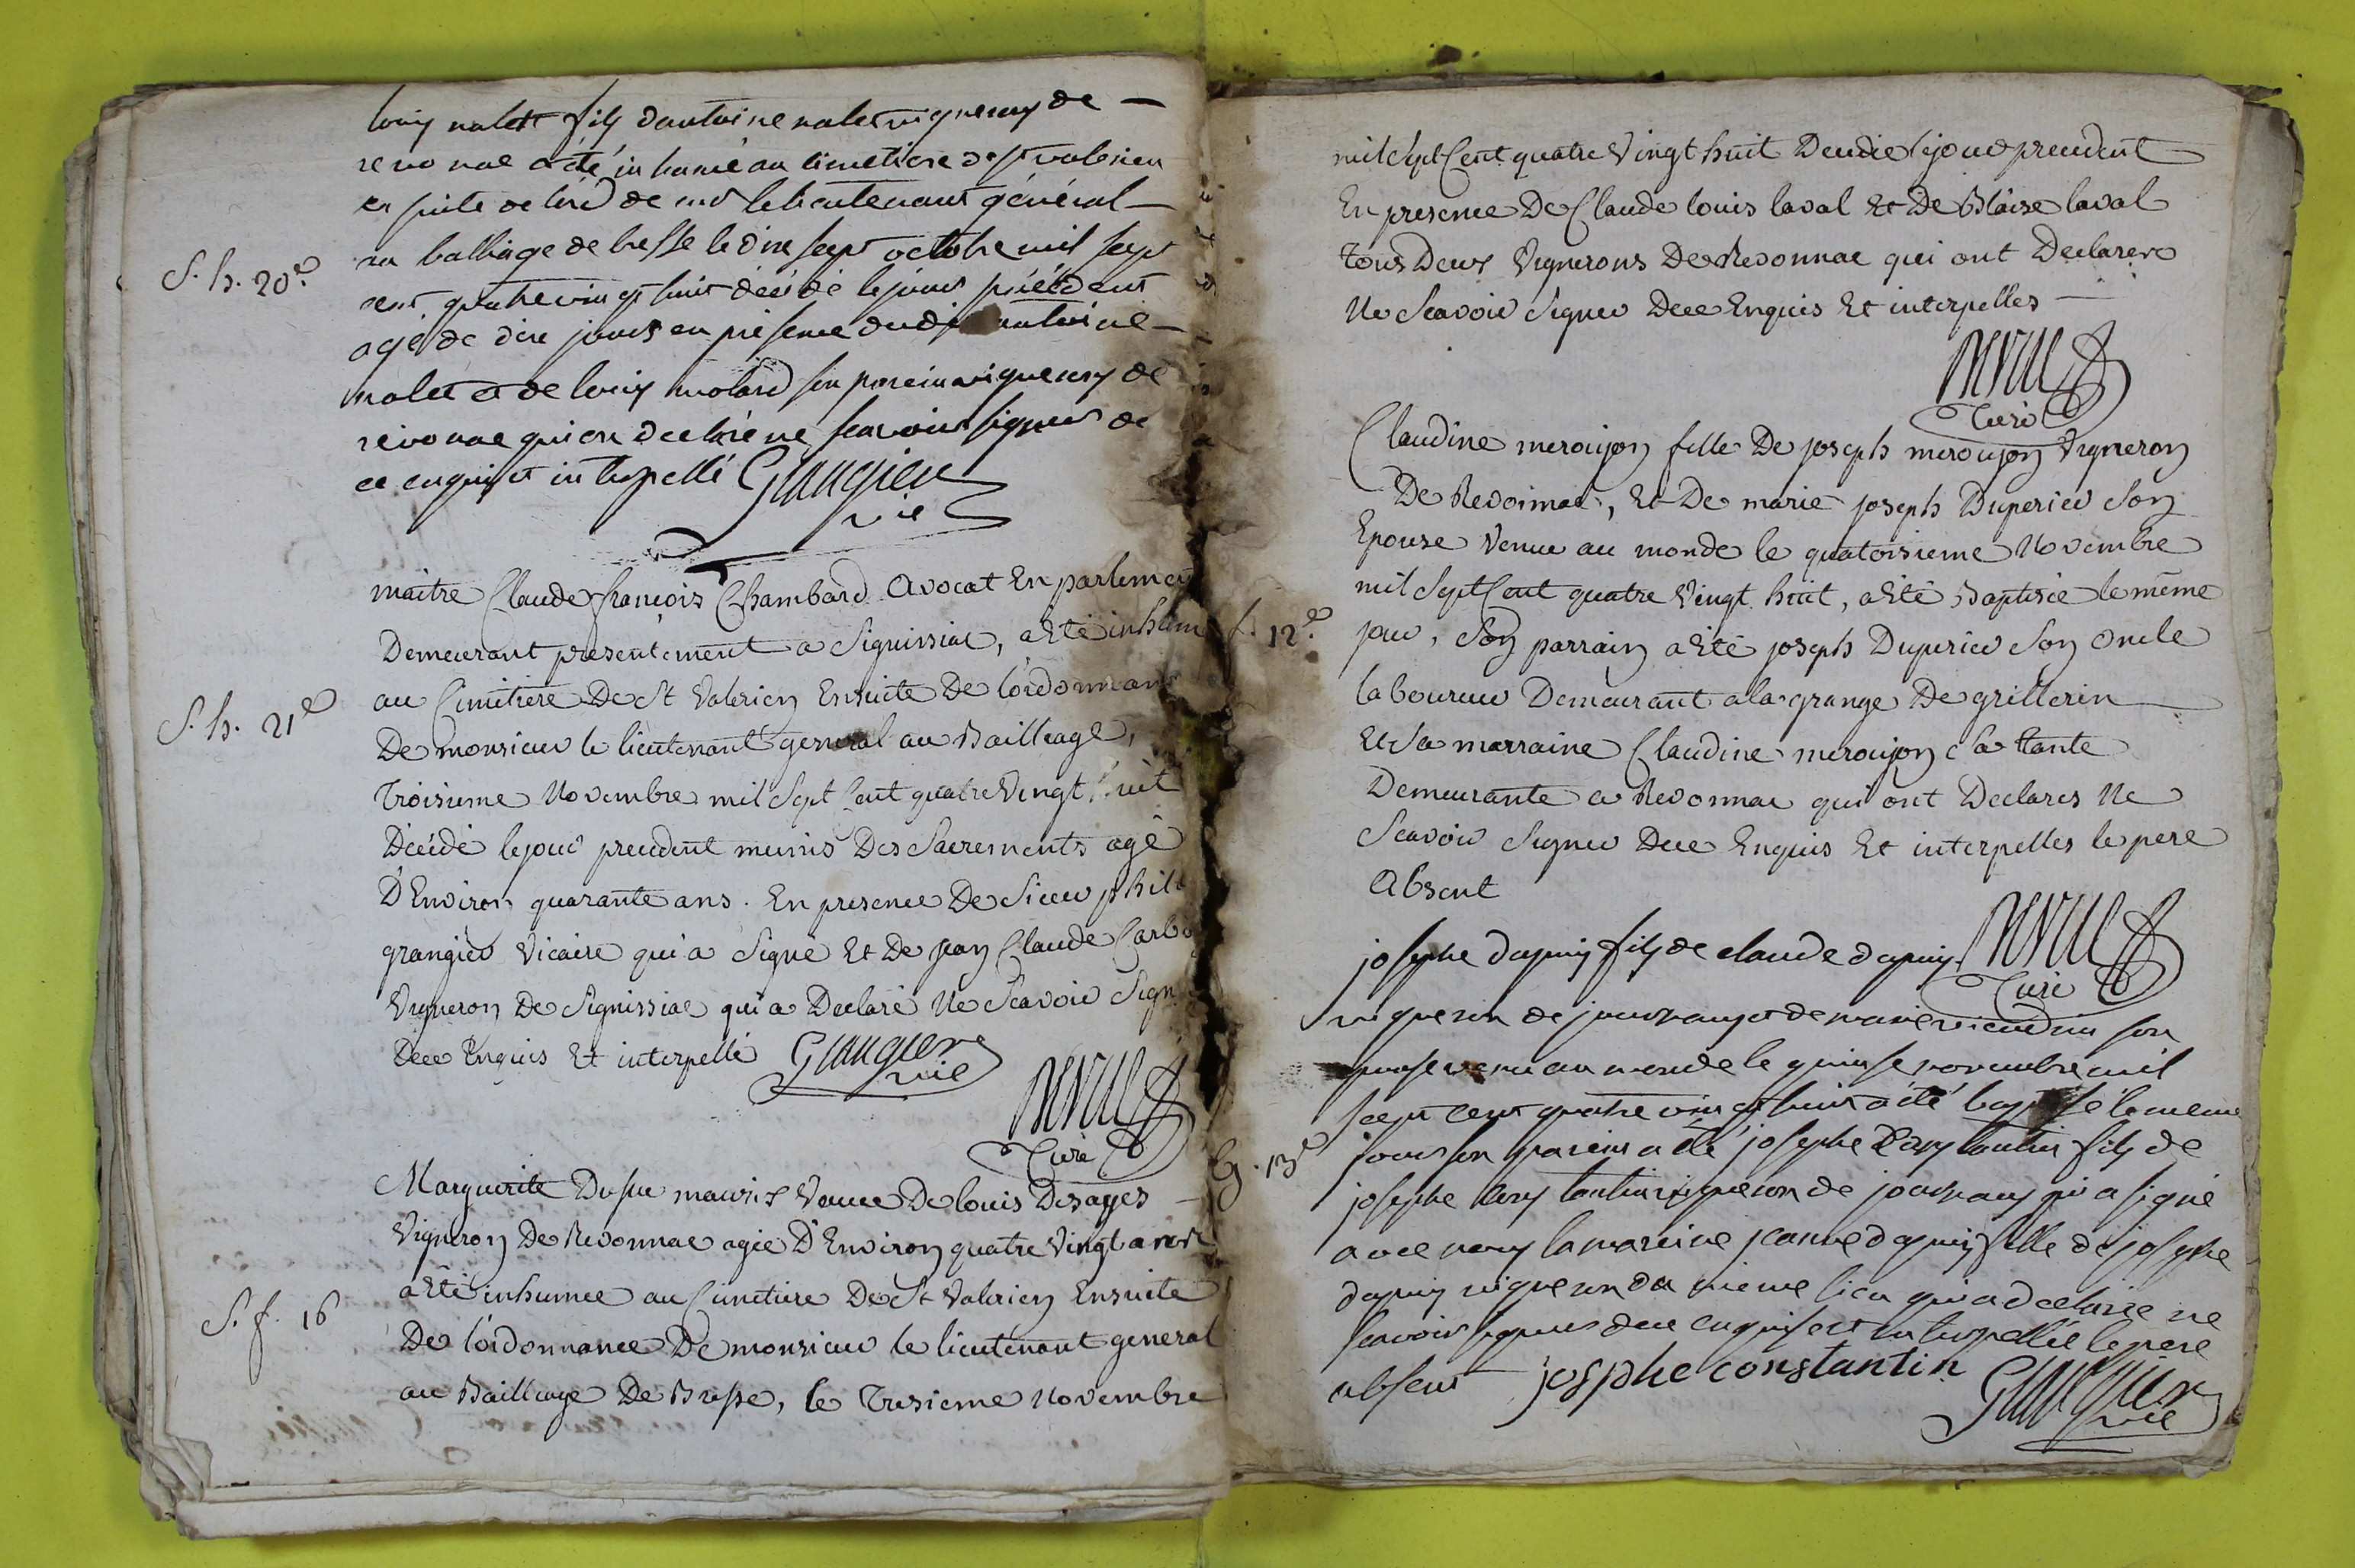 louis nalet fils d'antoine nalet vigneron de
revonnac a été inhumé au cimetiere de st valerien
en suite de l'ord de mr le lieutenant général
au balliage de bresse le dix sept octobre mil sept
S. h. 20e
cent quatre vingt huit décédé le jour précédent
agé de dix jours en présence dudit antoine
nalet et de louis molard son parein vignerons de
revonnac qui on declaré ne scavoir signer de
ce enquis et interpellé Grangier
vic
maitre Claude françois Chambard avocat En parlement
Demeurant presentement a Signissiat, a Eté inhum
au Cimitiere De St Valerien Ensuite De l'ordonnan
S. h. 21e
De monsieur le lieutenant general au Bailleage,
Troisieme Novembre mil Sept Cent quatre Vingt huit
Décédé le jour precedent munis Des Sacrements agé
D'Environ quarante ans. En presence De Sieur phili
grangier Vicaire qui a Signé Et De jean Claude Carb
Vigneron De Signissiat qui a Declaré Ne Scavoir Sign
Dece Enquis Et interpellé Grangier
vic
Curé
Marguerite mauris Veuve De louis Desages
Vigneron De Revonnac agée D'Environ quatre Vingt a
a Eté inhumee au Cimitiere De St Valerien Ensuite
S. f. 16
De l'ordonnance De monsieur le lieutenant general
au Bailliage De Bresse, le Tresieme Novembre
mil Sept Cent quatre Vingt huit Decedée le jour precedent
En presence De Claude louis laval Et De Blaise laval
Tous Deux Vignerons De Revonnac qui ont Declarer
Ne Scavoir Signer Dece Enquis Et interpelles
Curé
Claudine meroujon fille De joseph meroujon Vigneron
De Revonnac, Et De marie joseph Duperier Son
Epouse Venue au monde le quatorsieme Novembre
mil Sept Cent quatre Vingt huit, a Eté Baptisée le même
f. 12e
jour, Son parrain a Eté joseph Duperier Son Oncle
laboureur Demeurant a la grange De grillerin
Et Sa marraine Claudine meroujon Sa tante
Demeurante a Revonnac qui ont Declarés Ne
Scavoir Signer Dece Enquis Et interpelles le pere
Absent
Curé
josephe dupuis fils de claude dupuis
vigneron de journans et de marie son
epouse venu au monde le quinse novembre mil
sept cent quatre vingt huit a été baptisé le meme
G. 13e
jour son parein a été josephe Constantin fils de
josephe Constantin vigneron de journans qui a signé
avec nous la mareine jeanne dupuis fille de josephe
dupuis vigneron du meme lieu qui a declarée ne
scavoir signer dece enquise et interpellée le pere
absent josphe constantin
Grangier
vic